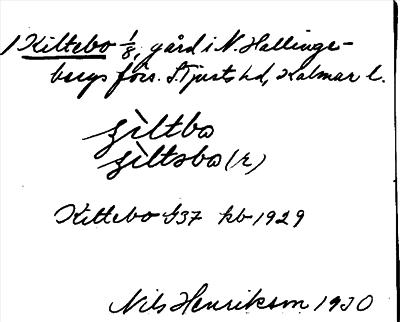 1 Kiltebo 1/8, gård i N. Hallinge-
bergs förs. S. Tjusts hd, Kalmar l.
ʝìltbo
ʝìltəbo (r)
Kittebo G37 hb 1929
Nils Henrikson 1930